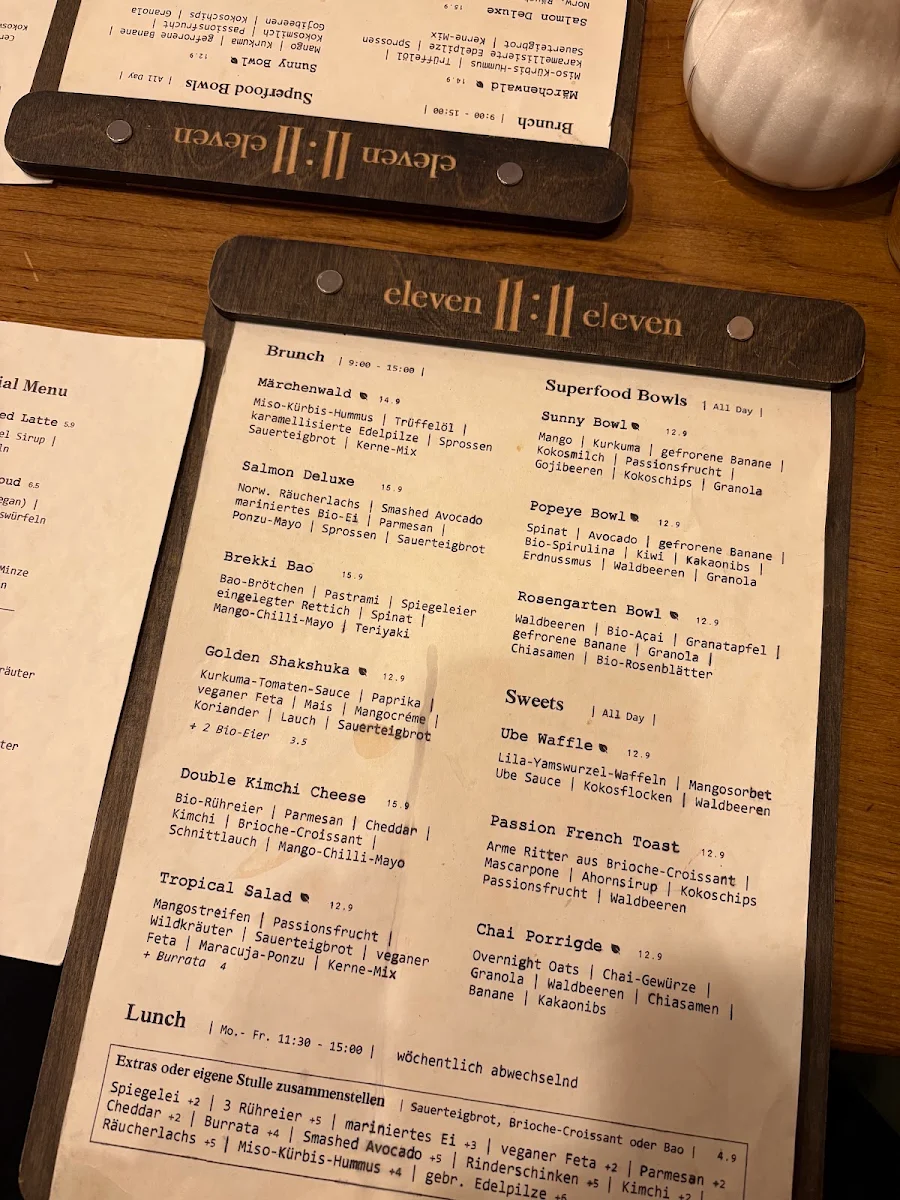 Brunch | 9:00 - 15:00 |
Märchenwald 14.9
Miso-Kürbis-Hummus | Trüffelöl |
karamellisierte Edelpilze | Sprossen
Sauerteigbrot | Kerne-Mix
Salmon Deluxe 15.9
Norw.
Superfood Bowls | All Day |
Sunny Bowl 12.9
Mango | Kurkuma | gefrorene Banane |
Kokosmilch | Passionsfrucht |
Gojibeeren | Kokoschips | Granola
eleven 11:11 eleven
eleven 11:11 eleven
Brunch | 9:00 - 15:00 |
Märchenwald 14.9
Miso-Kürbis-Hummus | Trüffelöl |
karamellisierte Edelpilze | Sprossen
Sauerteigbrot | Kerne-Mix
Salmon Deluxe 15.9
Norw. Räucherlachs | Smashed Avocado
mariniertes Bio-Ei | Parmesan |
Ponzu-Mayo | Sprossen | Sauerteigbrot
Brekki Bao 15.9
Bao-Brötchen | Pastrami | Spiegeleier
eingelegter Rettich | Spinat |
Mango-Chilli-Mayo | Teriyaki
Golden Shakshuka 12.9
Kurkuma-Tomaten-Sauce | Paprika |
veganer Feta | Mais | Mangocréme |
Koriander | Lauch | Sauerteigbrot
+ 2 Bio-Eier 3.5
Double Kimchi Cheese 15.9
Bio-Rühreier | Parmesan | Cheddar |
Kimchi | Brioche-Croissant |
Schnittlauch | Mango-Chilli-Mayo
Tropical Salad 12.9
Mangostreifen | Passionsfrucht |
Wildkräuter | Sauerteigbrot | veganer
Feta | Maracuja-Ponzu | Kerne-Mix
+ Burrata 4
Superfood Bowls | All Day |
Sunny Bowl 12.9
Mango | Kurkuma | gefrorene Banane |
Kokosmilch | Passionsfrucht |
Gojibeeren | Kokoschips | Granola
Popeye Bowl 12.9
Spinat | Avocado | gefrorene Banane |
Bio-Spirulina | Kiwi | Kakaonibs |
Erdnussmus | Waldbeeren | Granola
Rosengarten Bowl 12.9
Waldbeeren | Bio-Açai | Granatapfel |
gefrorene Banane | Granola |
Chiasamen | Bio-Rosenblätter
Sweets | All Day |
Ube Waffle 12.9
Lila-Yamswurzel-Waffeln | Mangosorbet
Ube Sauce | Kokosflocken | Waldbeeren
Passion French Toast 12.9
Arme Ritter aus Brioche-Croissant |
Mascarpone | Ahornsirup | Kokoschips
Passionsfrucht | Waldbeeren
Chai Porrigde 12.9
Overnight Oats | Chai-Gewürze |
Granola | Waldbeeren | Chiasamen |
Banane | Kakaonibs
Lunch | Mo.- Fr. 11:30 - 15:00 | wöchentlich abwechselnd
Extras oder eigene Stulle zusammenstellen | Sauerteigbrot, Brioche-Croissant oder Bao | 4.9
Spiegelei +2 | 3 Rühreier +5 | mariniertes Ei +3 | veganer Feta +2 | Parmesan +2
Cheddar +2 | Burrata +4 | Smashed Avocado +5 | Rinderschinken +5 | Kimchi +2 |
Räucherlachs +5 | Miso-Kürbis-Hummus +4 | gebr. Edelpilze
ial Menu
ed Latte 5.9
el Sirup |
ln
oud 6.5
egan) |
swürfeln
Minze
n
räuter
ter